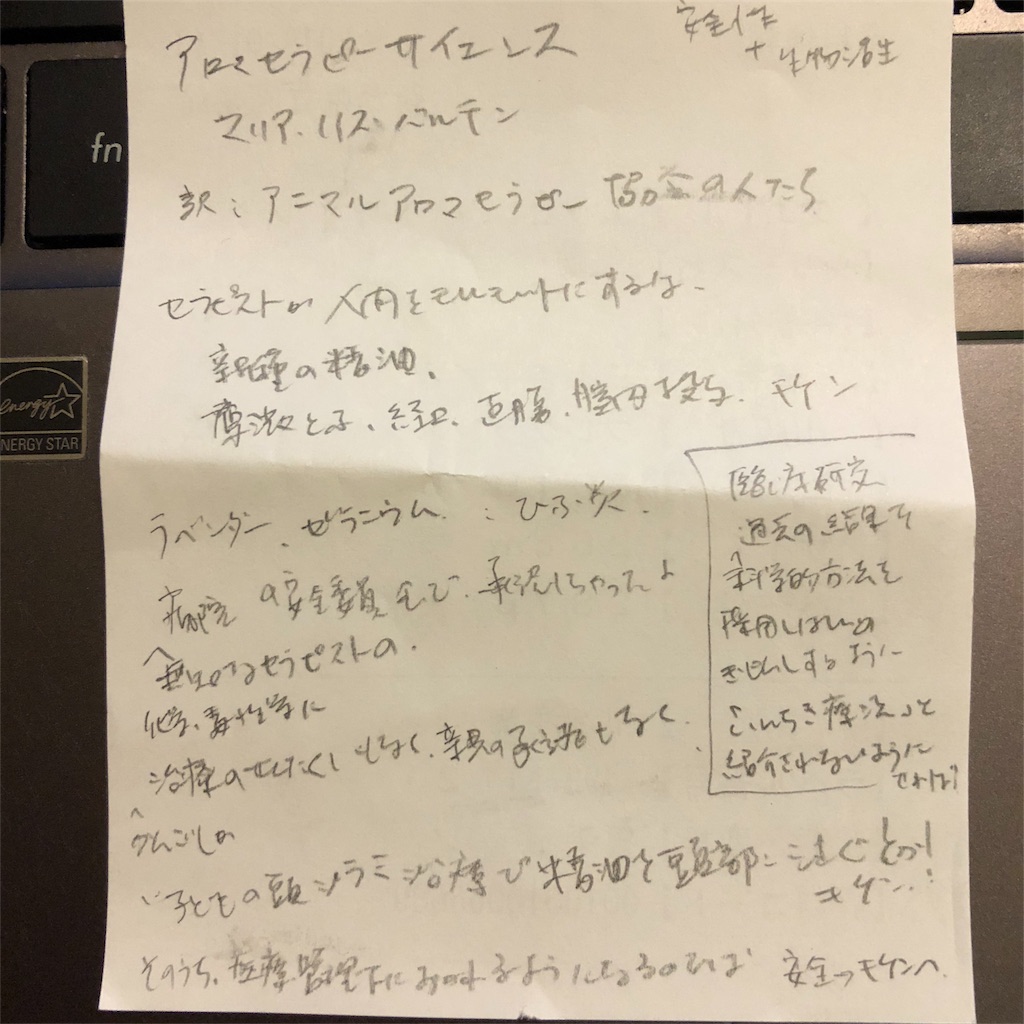 安全性
+ 生物活性
アロマセラピーサイエンス
マリア・リス・バルチン
fn
訳:アニマルアロマセラピー 協会の人たち
セラピストが人間をモルモットにするな
新種の精油、
energy
ENERGY STAR
摩擦とふ、経口、直腸、膣内投与、キケン
ラベンダー、ゼラニウム、:ひふ炎、
病院の安全委員会で、承認しちゃったよ
無知なるセラピストの、
化学、毒性学に
治療のせんたくしもなく、親の承諾もなく、
かんごしが
子どもの頭ジラミ治療で精油を頭部に注ぐとか!
キケン…!
そのうち、医療管理下におかれるようになるのでは 安全→キケンへ
臨床研究
過去の結果を
科学的方法を
採用しないと
きじゅんするように
「いんちき療法」と
紹介されないように
せねば?